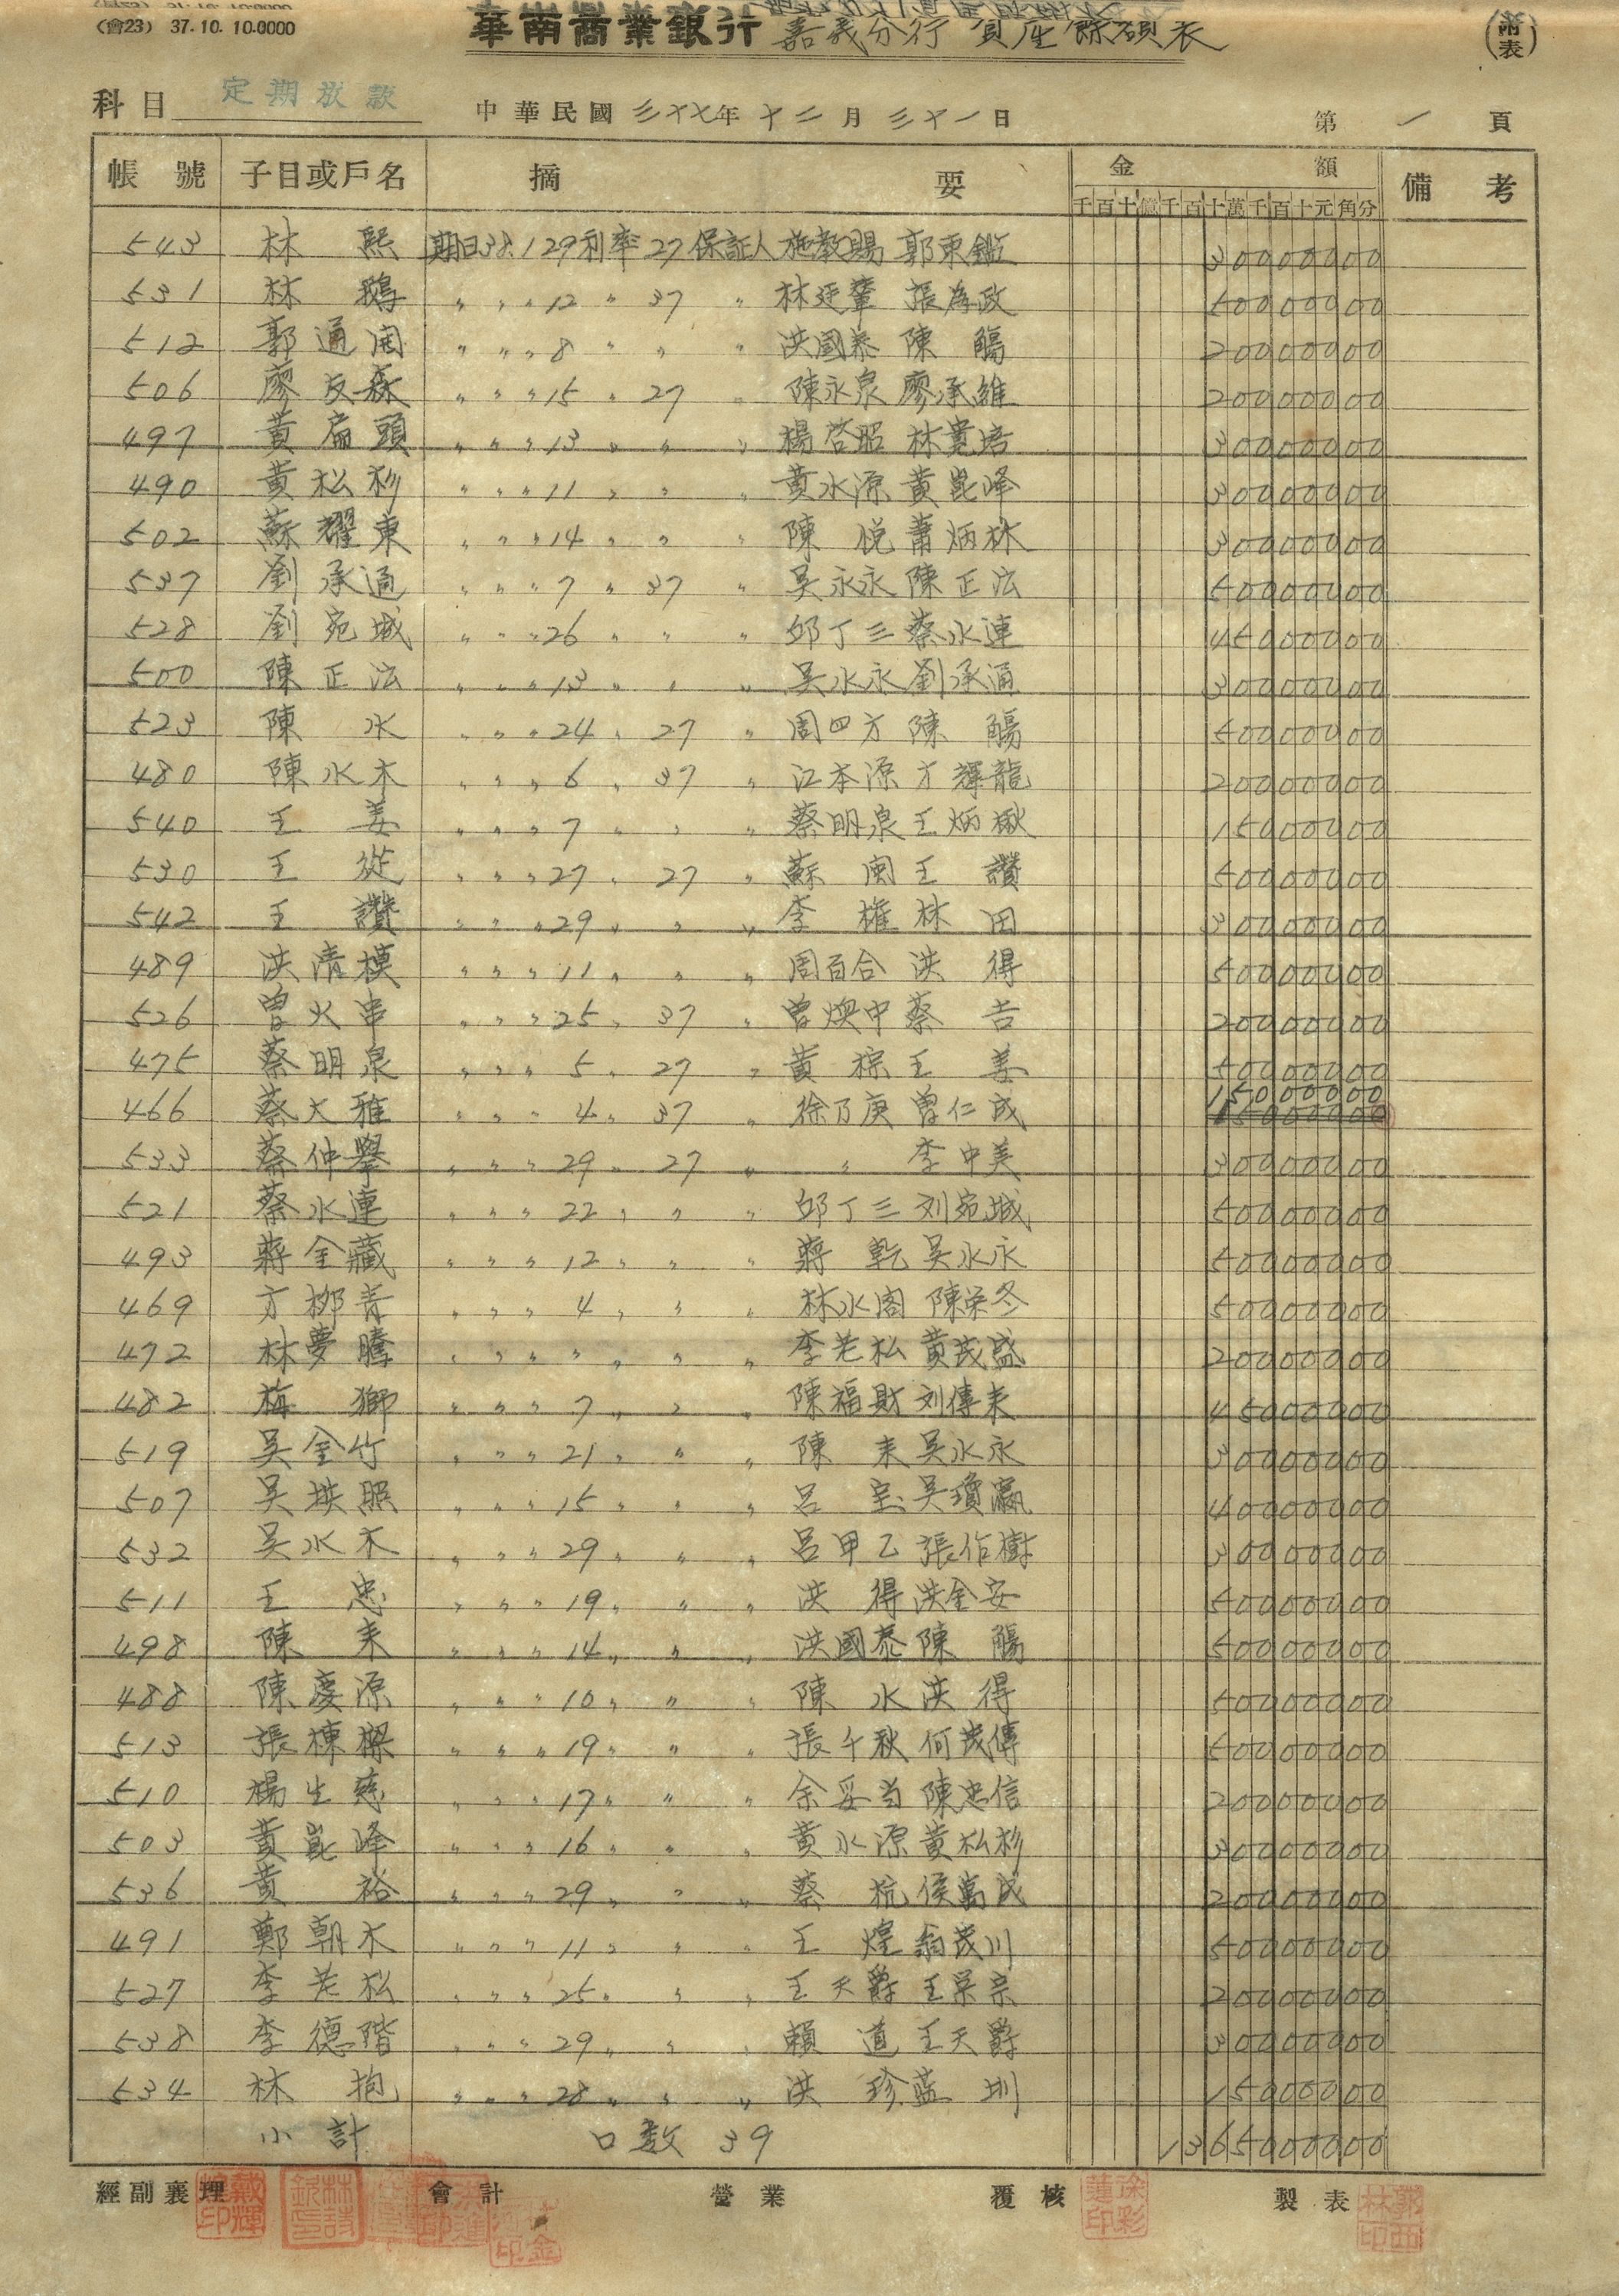 (會23) 37.10.10.0000
華南商業銀行 嘉義分行 資產餘額表
(附表)
科目 定期放款 中華民國 三十七年 十二月 三十一日 第 一 頁
帳號 子目或戶名 摘要 金額 備考
千百十億千百十萬千百十元角分
543 林熙 期日38.1 29 利率27 保証人 施教賜 郭東鑑 30000000
531 林鵝 〃 〃 〃 12 〃 37 〃 林廷輦 張為政 50000000
512 郭通閏 〃 〃 〃 8 〃 〃 〃 洪國泰 陳觴 20000000
506 廖友森 〃 〃 〃 15 〃 27 〃 陳永泉 廖承維 20000000
497 黃扁頭 〃 〃 〃 13 〃 〃 〃 楊啓昭 林寬培 30000000
490 黃松杉 〃 〃 〃 11 〃 〃 〃 黃水源 黃崑峰 30000000
502 蘇耀東 〃 〃 〃 14 〃 〃 〃 陳悅 蕭炳林 30000000
537 劉承通 〃 〃 〃 7 〃 37 〃 吳永永 陳正法 50000000
528 劉宛城 〃 〃 〃 26 〃 〃 〃 邱丁三 蔡水連 45000000
500 陳正法 〃 〃 〃 13 〃 〃 〃 吳水永 劉承通 30000000
523 陳水 〃 〃 〃 24 〃 27 〃 周四方 陳觴 50000000
480 陳水木 〃 〃 〃 6 〃 37 〃 江本源 方輝龍 20000000
540 王姜 〃 〃 〃 7 〃 〃 〃 蔡明泉 王炳楸 15000000
530 王從 〃 〃 〃 27 〃 27 〃 蘇閩 王讚 50000000
542 王讚 〃 〃 〃 29 〃 〃 〃 李雄 林田 30000000
489 洪清模 〃 〃 〃 11 〃 〃 〃 周百合 洪得 50000000
526 曾火串 〃 〃 〃 25 〃 37 〃 曾煥中 蔡吉 20000000
475 蔡明泉 〃 〃 〃 5 〃 27 〃 黃棕 王姜 50000000
15000000
466 蔡大雅 〃 〃 〃 4 〃 37 〃 徐乃庚 曾仁成
533 蔡仲舉 〃 〃 〃 29 〃 27 〃 〃 李中美 30000000
521 蔡水連 〃 〃 〃 22 〃 〃 〃 邱丁三 刘宛城 50000000
493 蔣全藏 〃 〃 〃 12 〃 〃 〃 蔣乾 吳水永 50000000
469 方柳青 〃 〃 〃 4 〃 〃 〃 林水閣 陳栄冬 50000000
472 林夢騰 〃 〃 〃 〃 〃 〃 〃 李老松 黃茂盛 20000000
482 梅獅 〃 〃 〃 7 〃 〃 〃 陳福財 刘傳来 45000000
519 吳全竹 〃 〃 〃 21 〃 〃 〃 陳来 吳水永 30000000
507 吳拱照 〃 〃 〃 15 〃 〃 〃 呂宝 吳瓊瀛 40000000
532 吳水木 〃 〃 〃 29 〃 〃 〃 呂甲乙 張作樹 30000000
511 王忠 〃 〃 〃 19 〃 〃 〃 洪得 洪全安 50000000
498 陳来 〃 〃 〃 14 〃 〃 〃 洪國泰 陳觴 50000000
488 陳慶源 〃 〃 〃 10 〃 〃 〃 陳水 洪得 50000000
513 張棟樑 〃 〃 〃 19 〃 〃 〃 張午秋 何茂傳 50000000
510 楊生慈 〃 〃 〃 17 〃 〃 〃 余妥当 陳忠信 20000000
503 黃崑峰 〃 〃 〃 16 〃 〃 〃 黃水源 黃松杉 30000000
536 黃裕 〃 〃 〃 29 〃 〃 〃 蔡抗 侯萬成 20000000
491 鄭朝木 〃 〃 〃 11 〃 〃 〃 王煌 翁茂川 50000000
527 李老松 〃 〃 〃 25 〃 〃 〃 王天爵 王吳宗 20000000
538 李德階 〃 〃 〃 29 〃 〃 〃 賴道 王天爵 30000000
534 林抱 〃 〃 〃 28 〃 〃 〃 洪珍 蓝圳 15000000
小計 口数 39 1365000000
經副襄理 會計 營業 覆核 製表